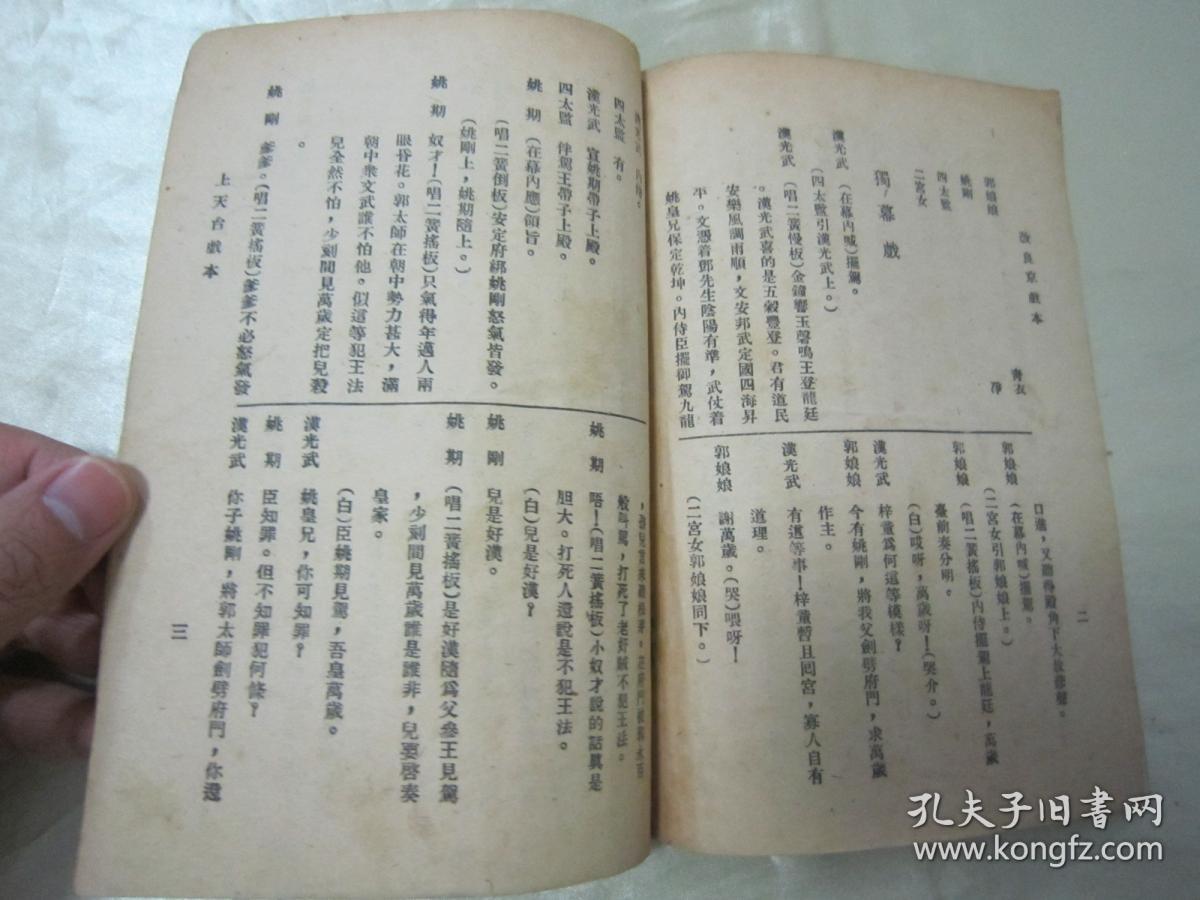 改良京戲本
二
郭娘娘 青衣
姚剛 淨
四太監
二宮女
獨幕戲
漢光武 (在幕內喊)擺駕。
(四太監引漢光武上。)
漢光武 (唱二簧慢板)金鐘響玉磬鳴王登龍廷
。漢光武喜的是五穀豐登。君有道民
安樂風調雨順,文安邦武定國四海昇
平。文憑着鄧先生陰陽有準,武仗着
姚皇兄保定乾坤。內侍臣擺御駕九龍
口進,又聽得殿角下大放悲聲。
郭娘娘 (在幕內喊)擺駕。
(二宮女引郭娘娘上。)
郭娘娘 (唱二簧搖板)內侍擺駕上龍廷,萬歲
臺前奏分明。
(白)哎呀,萬歲呀!(哭介。)
漢光武 梓童爲何這等模樣?
郭娘娘 今有姚剛,將我父劍劈府門,求萬歲
作主。
漢光武 有這等事!梓童暫且囘宮,寡人自有
道理。
郭娘娘 謝萬歲。(哭)喂呀!
(二宮女郭娘娘同下。)
漢光武 內侍。
四太監 有。
漢光武 宣姚期帶子上殿。
四太監 伴駕王帶子上殿。
姚期 (在幕內應)領旨。
(唱二簧倒板)安定府綁姚剛怒氣皆發。
(姚剛上,姚期隨上。)
姚期 奴才!(唱二簧搖板)只氣得年邁人兩
眼昏花。郭太師在朝中勢力甚大,滿
朝中衆文武誰不怕他。似這等犯王法
兒全然不怕,少刻間見萬歲定把兒殺
。
姚剛 爹爹。(唱二簧搖板)爹爹不必怒氣發
般叫罵,打死了老奸賊不犯王法。
姚期 唔!(唱二簧搖板)小奴才說的話眞是
胆大。打死人還說是不犯王法。
(白)兒是好漢?
姚剛 兒是好漢。
姚期 (唱二簧搖板)是好漢隨爲父參王見駕
,少刻間見萬歲誰是誰非,兒要啓奏
皇家。
(白)臣姚期見駕,吾皇萬歲。
漢光武 姚皇兄,你可知罪?
姚期 臣知罪。但不知罪犯何條?
漢光武 你子姚剛,將郭太師劍劈府門,你還
上天台戲本
三
孔夫子旧書网
www.kongfz.com